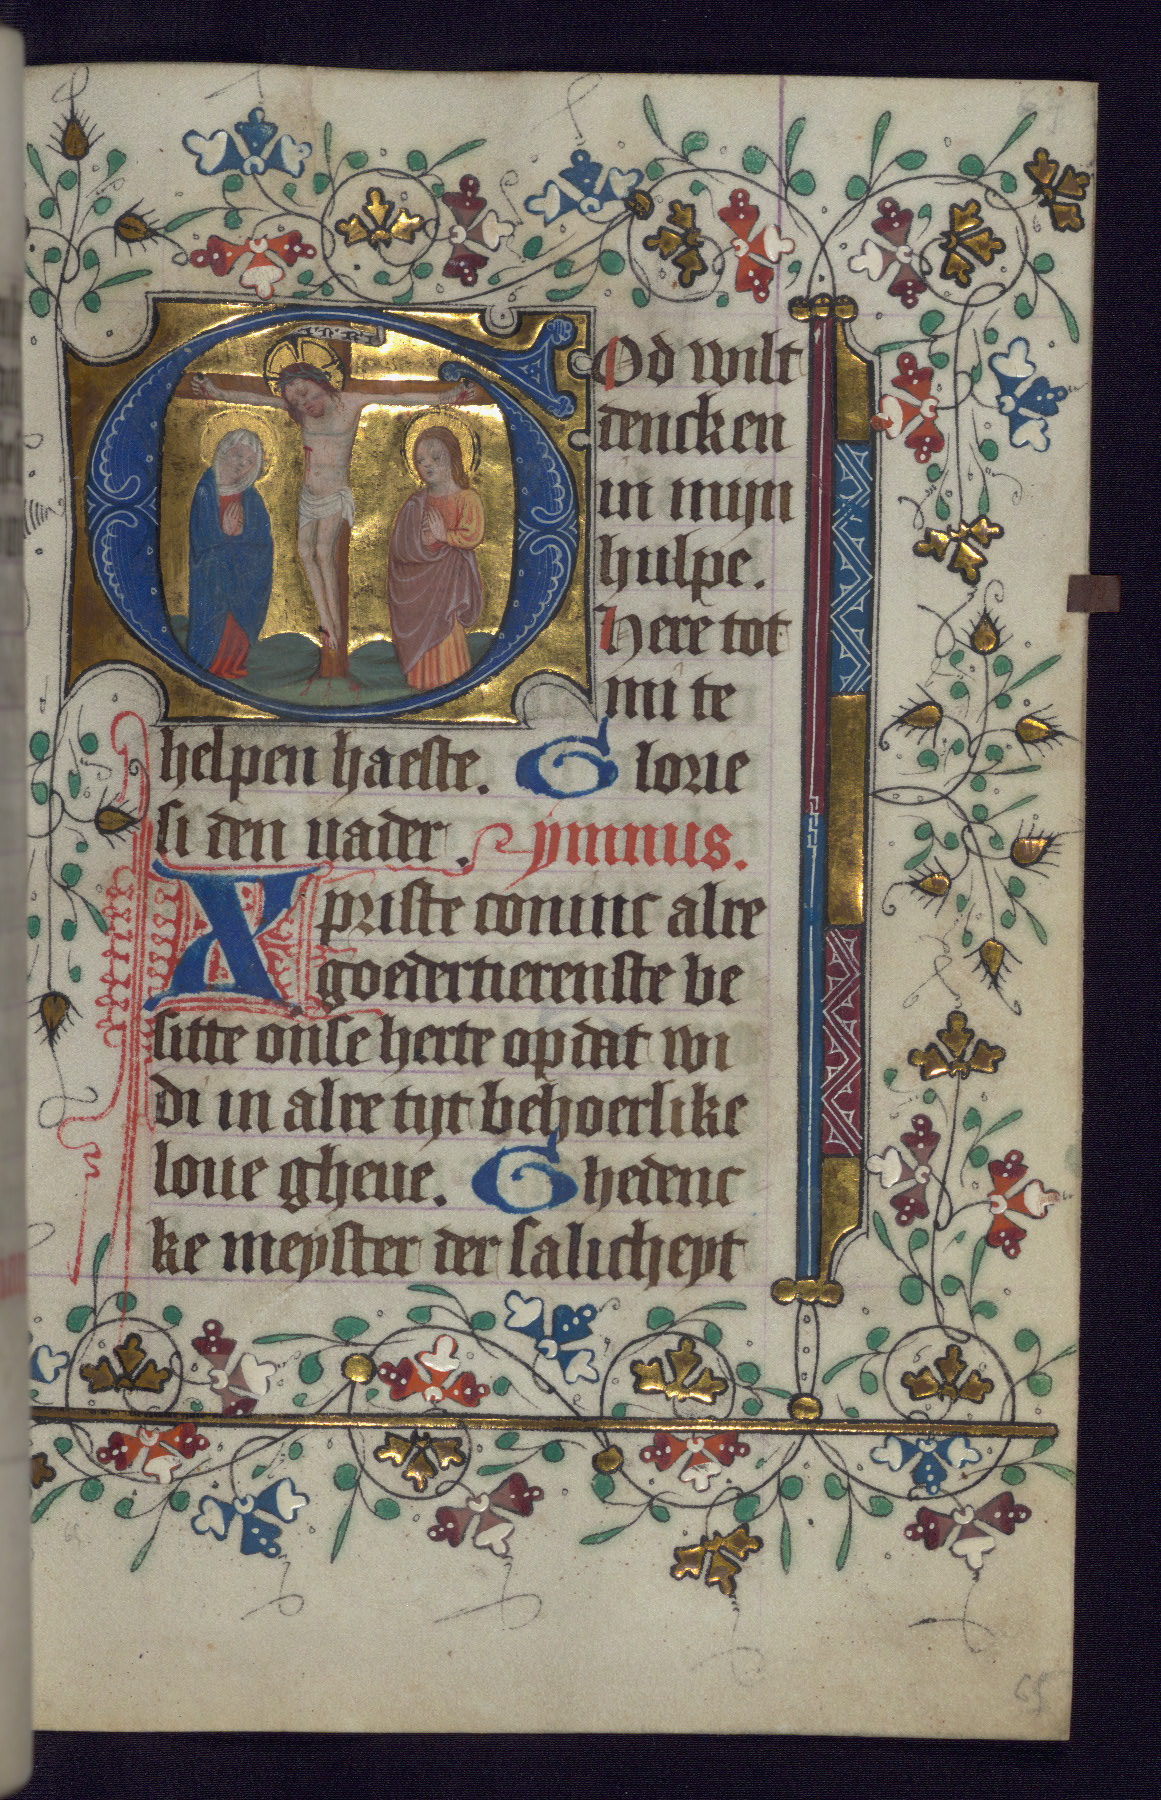 God wilt
dencken
in mijn
hulpe.
Here tot
mi te
helpen haeste. Glorie
si den vader. ymnus.
Xpriste coninc alre
goedertierenste be
sitte onse herte op dat wi
di in alre tijt behoerlike
loue gheue. Ghedenc
ke meyster der salicheyt
65